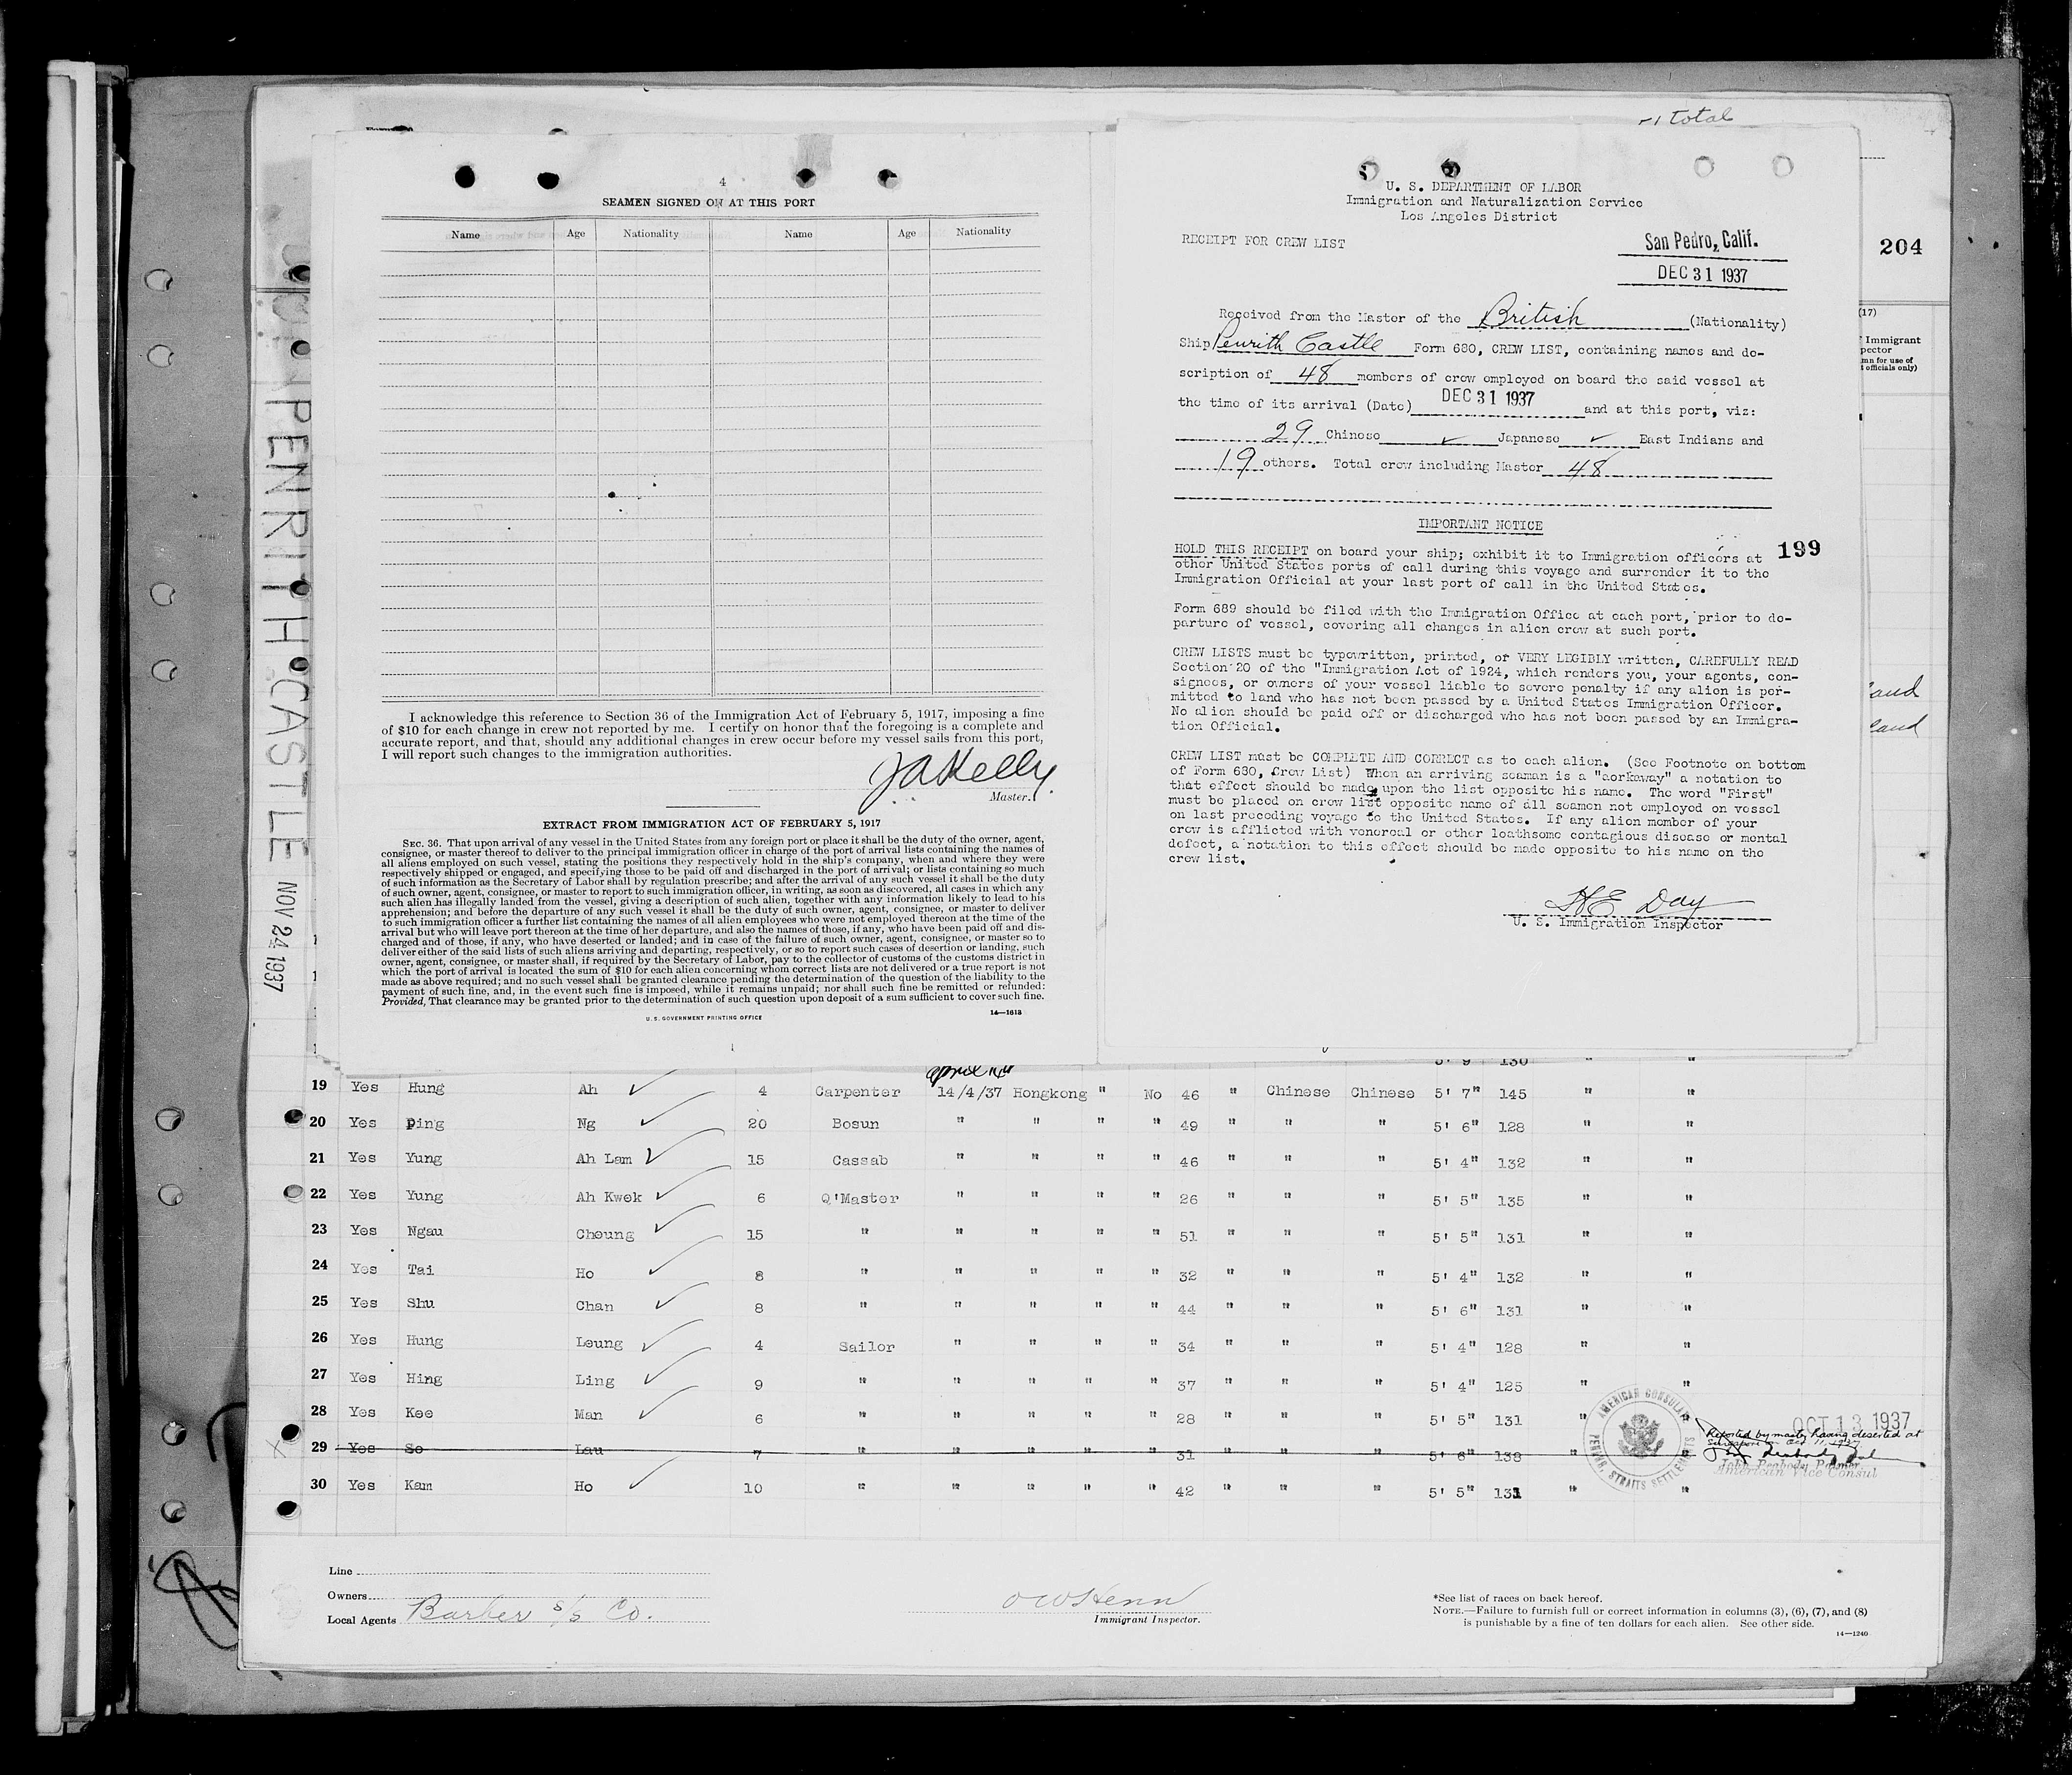 Total
4
SEAMEN SIGNED ON AT THIS PORT
Name Age Nationality Name Age Nationality
I acknowledge this reference to Section 36 of the Immigration Act of February 5, 1917, imposing a fine
of $10 for each change in crew not reported by me. I certify on honor that the foregoing is a complete and
accurate report, and that, should any additional changes in crew occur before my vessel sails from this port,
I will report such changes to the immigration authorities.
JAKelly
Master.
EXTRACT FROM IMMIGRATION ACT OF FEBRUARY 5, 1917
SEC. 36. That upon arrival of any vessel in the United States from any foreign port or place it shall be the duty of the owner, agent,
consignee, or master thereof to deliver to the principal immigration officer in charge of the port of arrival lists containing the names of
all aliens employed on such vessel, stating the positions they respectively hold in the ship's company, when and where they were
respectively shipped or engaged, and specifying those to be paid off and discharged in the port of arrival; or lists containing so much
of such information as the Secretary of Labor shall by regulation prescribe; and after the arrival of any such vessel it shall be the duty
of such owner, agent, consignee, or master to report to such immigration officer, in writing, as soon as discovered, all cases in which any
such alien has illegally landed from the vessel, giving a description of such alien, together with any information likely to lead to his
apprehension; and before the departure of any such vessel it shall be the duty of such owner, agent, consignee, or master to deliver
to such immigration officer a further list containing the names of all alien employees who were not employed thereon at the time of the
arrival but who will leave port thereon at the time of her departure, and also the names of those, if any, who have been paid off and dis-
charged and of those, if any, who have deserted or landed; and in case of the failure of such owner, agent, consignee, or master so to
deliver either of the said lists of such aliens arriving and departing, respectively, or so to report such cases of desertion or landing, such
owner, agent, consignee, or master shall, if required by the Secretary of Labor, pay to the collector of customs of the customs district in
which the port of arrival is located the sum of $10 for each alien concerning whom correct lists are not delivered or a true report is not
made as above required; and no such vessel shall be granted clearance pending the determination of the question of the liability to the
payment of such fine, and, in the event such fine is imposed, while it remains unpaid; nor shall such fine be remitted or refunded:
Provided, That clearance may be granted prior to the determination of such question upon deposit of a sum sufficient to cover such fine.
U. S. GOVERNMENT PRINTING OFFICE 14—1613
U. S. DEPARTMENT OF LABOR
Immigration and Naturalization Service
Los Angeles District
RECEIPT FOR CREW LIST
San Pedro, Calif.
DEC 31 1937
Received from the Master of the British (Nationality)
Ship Penrith Castle Form 680, CREW LIST, containing names and de-
scription of 48 members of crew employed on board the said vessel at
the time of its arrival (Date) DEC 31 1937 and at this port, viz:
29 Chinese ✓ Japanese ✓ East Indians and
19 others. Total crew including Master 48
IMPORTANT NOTICE
HOLD THIS RECEIPT on board your ship; exhibit it to Immigration officers at
other United States ports of call during this voyage and surrender it to the
Immigration Official at your last port of call in the United States.
199
Form 689 should be filed with the Immigration Office at each port, prior to de-
parture of vessel, covering all changes in alien crew at such port.
CREW LISTS must be typewritten, printed, or VERY LEGIBLY written, CAREFULLY READ
Section 20 of the "Immigration Act of 1924, which renders you, your agents, con-
signees, or owners of your vessel liable to severe penalty if any alien is per-
mitted to land who has not been passed by a United States Immigration Officer.
No alien should be paid off or discharged who has not been passed by an Immigra-
tion Official.
CREW LIST must be COMPLETE AND CORRECT as to each alien. (See Footnote on bottom
of Form 680, Crew List) When an arriving seaman is a "aorkaway" a notation to
that effect should be made upon the list opposite his name. The word "First"
must be placed on crew list opposite name of all seamen not employed on vessel
on last preceding voyage to the United States. If any alien member of your
crew is afflicted with venereal or other loathsome contagious disease or mental
defect, a notation to this effect should be made opposite to his name on the
crew list.
HE Day
U. S. Immigration Inspector
204
(17)
Immigrant
pector
mn for use of
t officials only)
PENRITH CASTLE NOV 24 1937
5' 9 130 "
19 Yes Hung Ah ✓ 4 Carpenter 14/4/37 Hongkong " No 46 " Chinese Chinese 5' 7" 145 " "
20 Yes Ping Ng ✓ 20 Bosun " " " " 49 " " " 5' 6" 128 " "
21 Yes Yung Ah Lam ✓ 15 Cassab " " " " 46 " " " 5' 4" 132 " "
22 Yes Yung Ah Kwok ✓ 6 Q'Master " " " " 26 " " " 5' 5" 135 " "
23 Yes Ngau Cheung ✓ 15 " " " " " 51 " " " 5' 5" 131 " "
24 Yes Tai Ho ✓ 8 " " " " " 32 " " " 5' 4" 132 " "
25 Yes Shu Chan ✓ 8 " " " " " 44 " " " 5' 6" 131 " "
26 Yes Hung Leung ✓ 4 Sailor " " " " 34 " " " 5' 4" 128 " "
27 Yes Hing Ling ✓ 9 " " " " " 37 " " " 5' 4" 125 " "
28 Yes Kee Man ✓ 6 " " " " " 28 " " " 5' 5" 131 " "
29 Yes So Lau 7 " " " " " 31 " " " 5' 6" 138 " "
30 Yes Kam Ho ✓ 10 " " " " " 42 " " " 5' 5" 131 " "
AMERICAN CONSULAR
PENANG, STRAITS SETTLEMENTS
OCT 13 1937
Reported by master having deserted at
Singapore on Oct. 11, 1937
John Peabody Palmer
American Vice Consul
Line
Owners
Local Agents Barber S/S Co.
OWHenn
Immigrant Inspector.
*See list of races on back hereof.
NOTE.—Failure to furnish full or correct information in columns (3), (6), (7), and (8)
is punishable by a fine of ten dollars for each alien. See other side.
14—1240